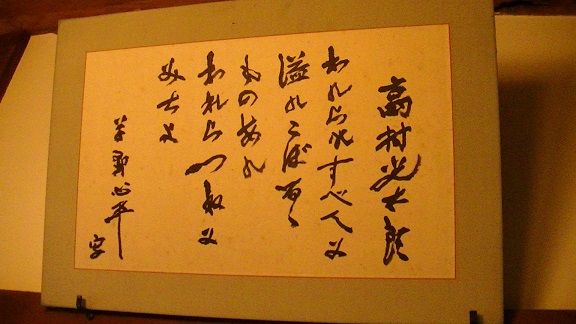 高村光太郎
われらのすべてに
溢れこぼるゝ
ものあれ
われらつねに
みちよ
草野心平
字